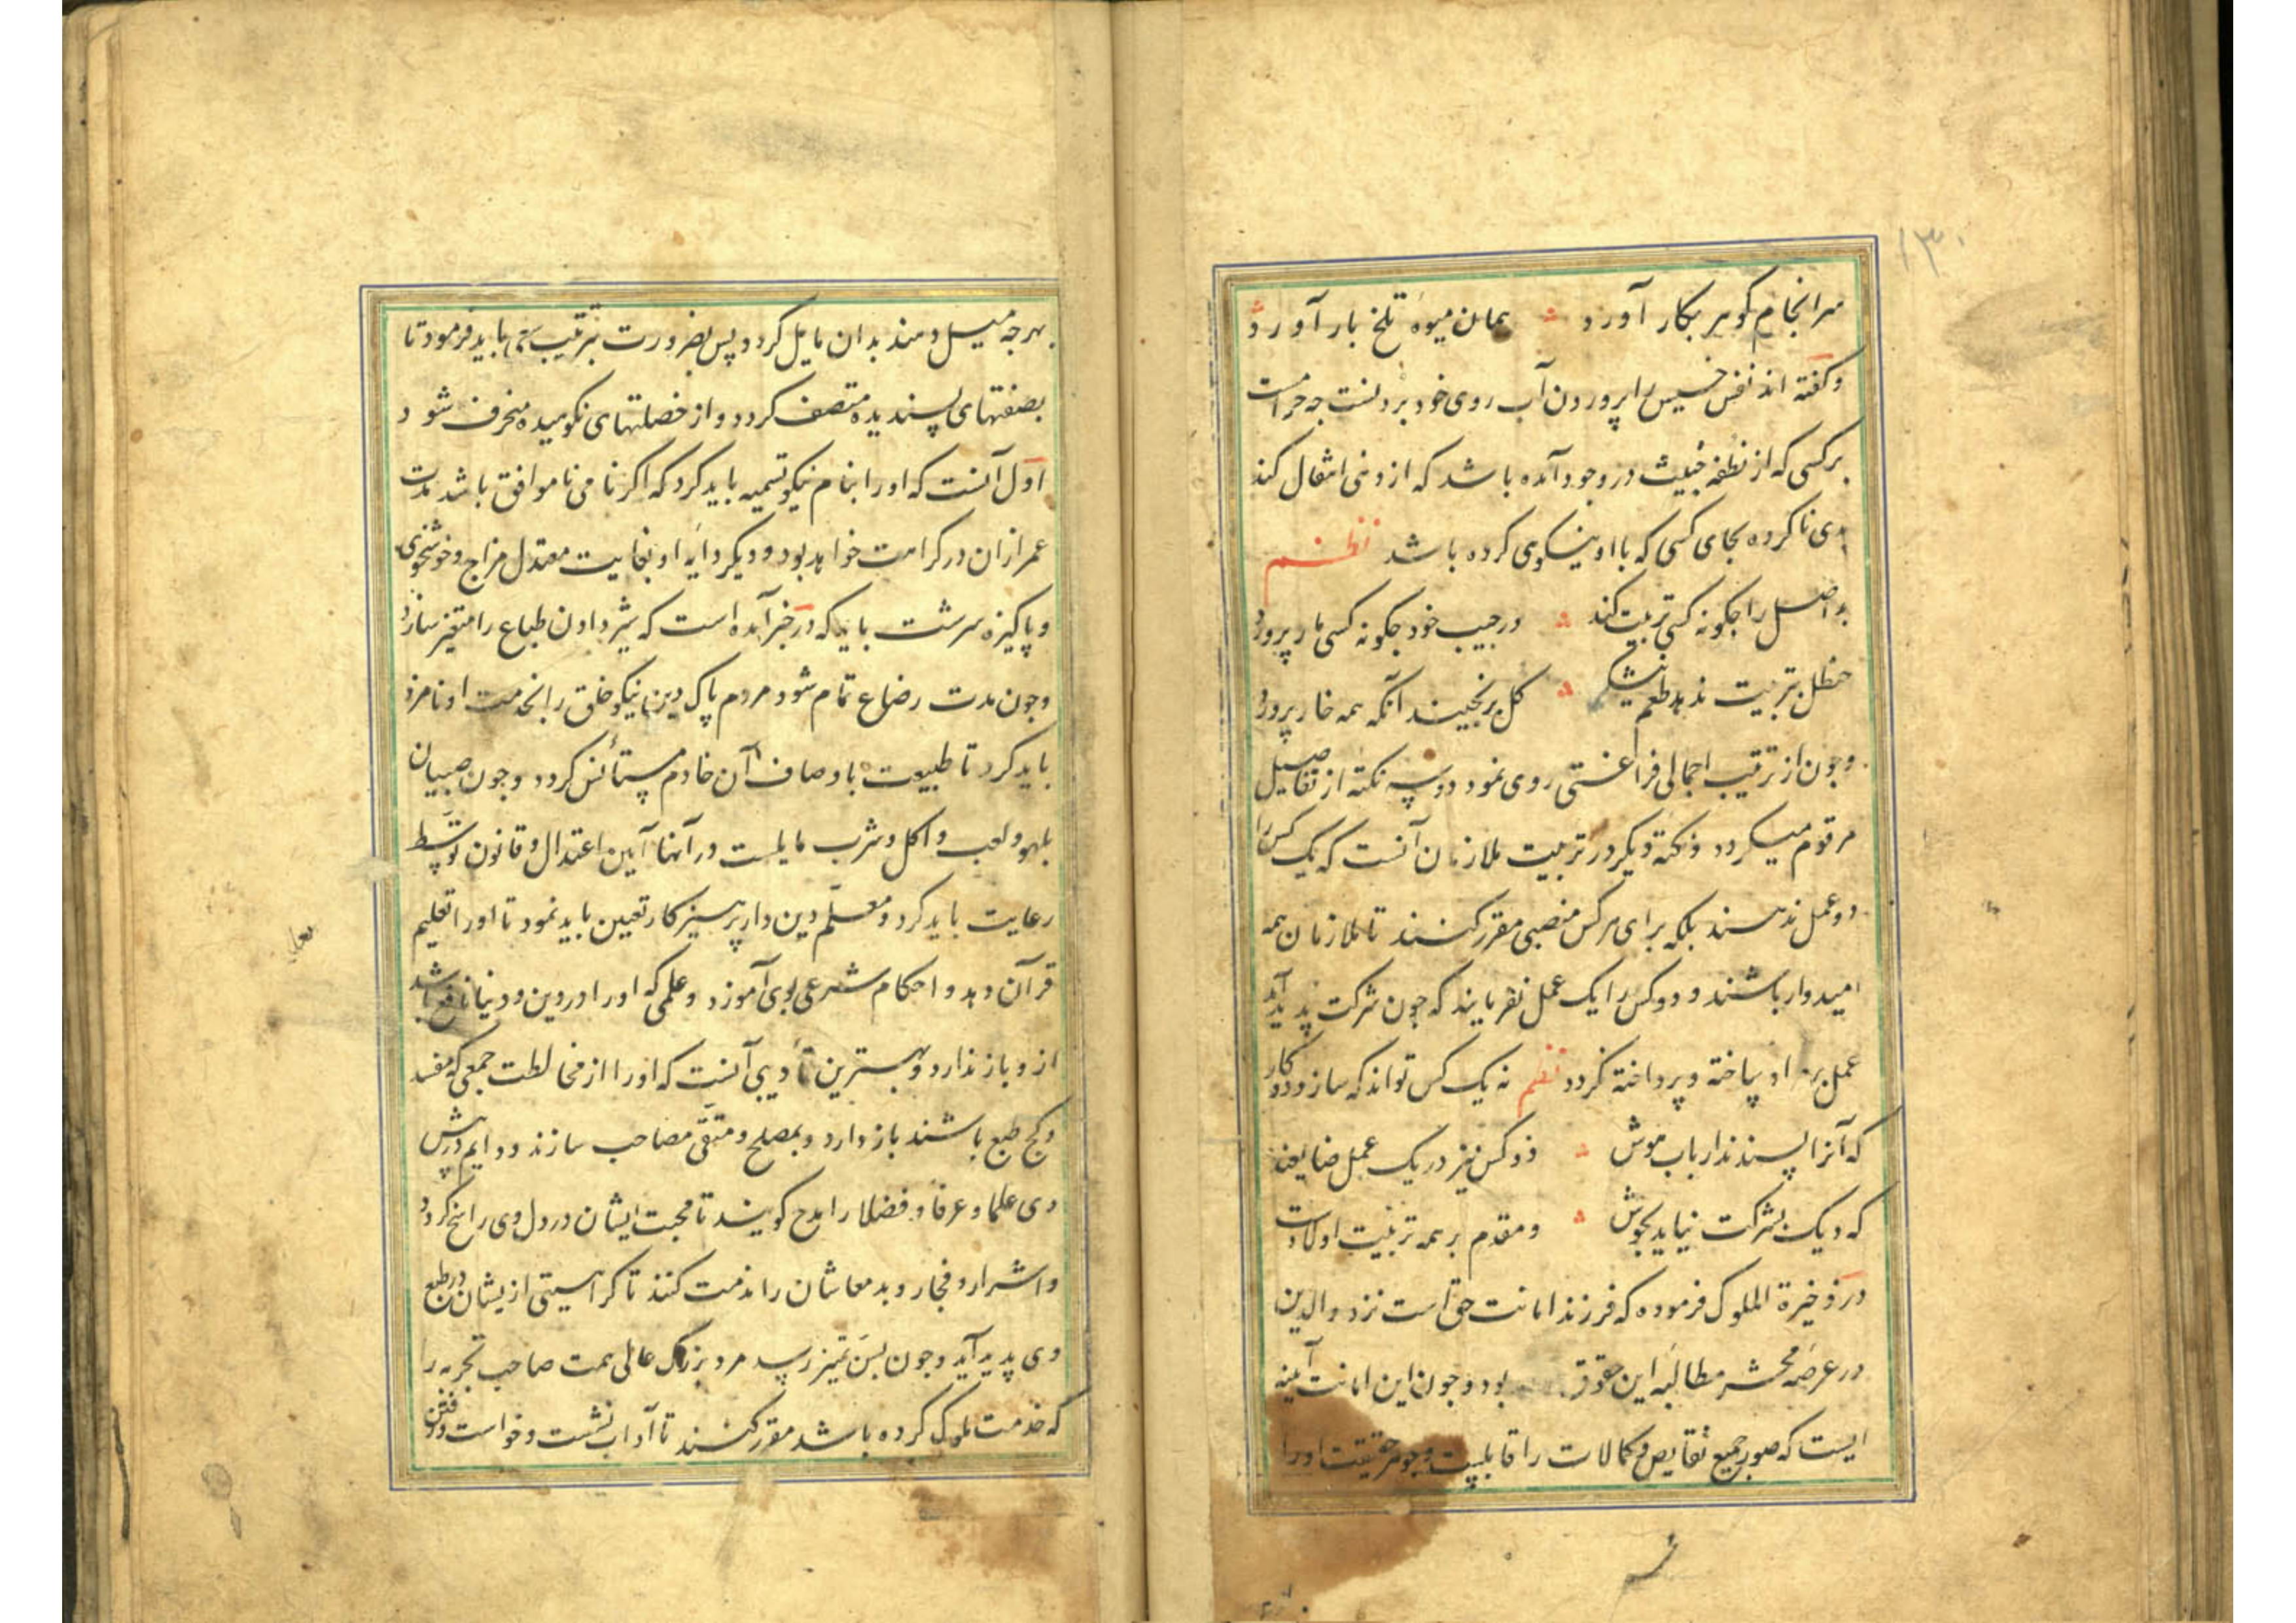 ۱۳۰
سرانجام کوهر بکار آورد همان میوه تلخ بار آورد
و کفته اند نفس خسیس را پروردن آب روی خود بردنست چه حرامست
برکسی که از نطفه خبیث در وجود آمده باشد که از دنی انتقال کند
بدی ناکرده بجای کسی که با او نیکوی کرده باشد نظم
بد اصل را چکونه کسی تربیت کند در جیب خود چکونه کسی مار پرورد
حنظل بتربیت ندهد طعم نیشکر کل برنچیند آنکه همه خار پرورد
و چون از ترتیب اجمالی فراغتی روی نمود دو سه نکته از تفاصیل
مرقوم میکردد و نکته دیکر در تربیت ملازمان آنست که یک کس را
دو عمل ندهند بلکه برای هرکس منصبی مقرر کنند تا ملازمان همه
امیدوار باشند و دو کس را یک عمل نفرمایند که چون شرکت پدید آید
عمل بمراد ساخته و پرداخته نکردد نظم نه یک کس تواند که سازد دو کار
که آنرا پسندند ارباب هوش دو کس نیز در یک عمل ضایعند
که دیک بشرکت نیاید بجوش و مقدم بر همه تربیت اولادست
در ذخیرة الملوک فرموده که فرزند امانت حق است نزد والدین
در عرصه محشر مطالبه این حقوق بود و چون این امانت آینه
ایست که صور جمیع نقایص و کمالات را قابلیت و جوهر حقیقت او را
بهرچه میل دهند بدان مایل کردد پس بضرورت بترتیب سعی باید فرمود تا
بصفتهای پسندیده متصف کردد و از خصلتهای نکوهیده منحرف شود
اول آنست که او را بنام نیکو تسمیه باید کرد که اکر نامی ناموافق باشد مدت
عمر از ان در کراهت خواهد بود و دیکر دایه او بغایت معتدل مزاج و خوشخوی
و پاکیزه سرشت باید که در خبر آمده است که شیر دادن طباع را متغیر سازد
و چون مدت رضاع تمام شود مردم پاک دین نیکو خلق را بخدمت او نامزد
باید کرد تا طبیعت باوصاف آن خادم مستأنس کردد و چون صبیان
بلهو و لعب و اکل و شرب مایلست در آنها آیین اعتدال و قانون توسط
رعایت باید کرد و معلم دین دار پرهیزکار تعیین باید نمود تا او را تعلیم
قرآن دهد و احکام شرعی بوی آموزد و علمی که او را در دین و دنیا نافع باشد
از و باز ندارد و بهترین تأدیبی آنست که او را از مخالطت جمعی که مفسد
و کج طبع باشند باز دارد و بمصلح و متقی مصاحب سازند و دایم در پیش
وی علما و عرفا و فضلا را مدح کویند تا محبت ایشان در دل وی راسخ کردد
و اشرار و فجار و بدمعاشان را مذمت کنند تا کراهیتی از یشان در طبع
وی پدید آید و چون بسن تمیز رسد مرد بزرک عالی همت صاحب تجربه را
که خدمت ملوک کرده باشد مقرر کنند تا آداب نشست و خواست و رفتن